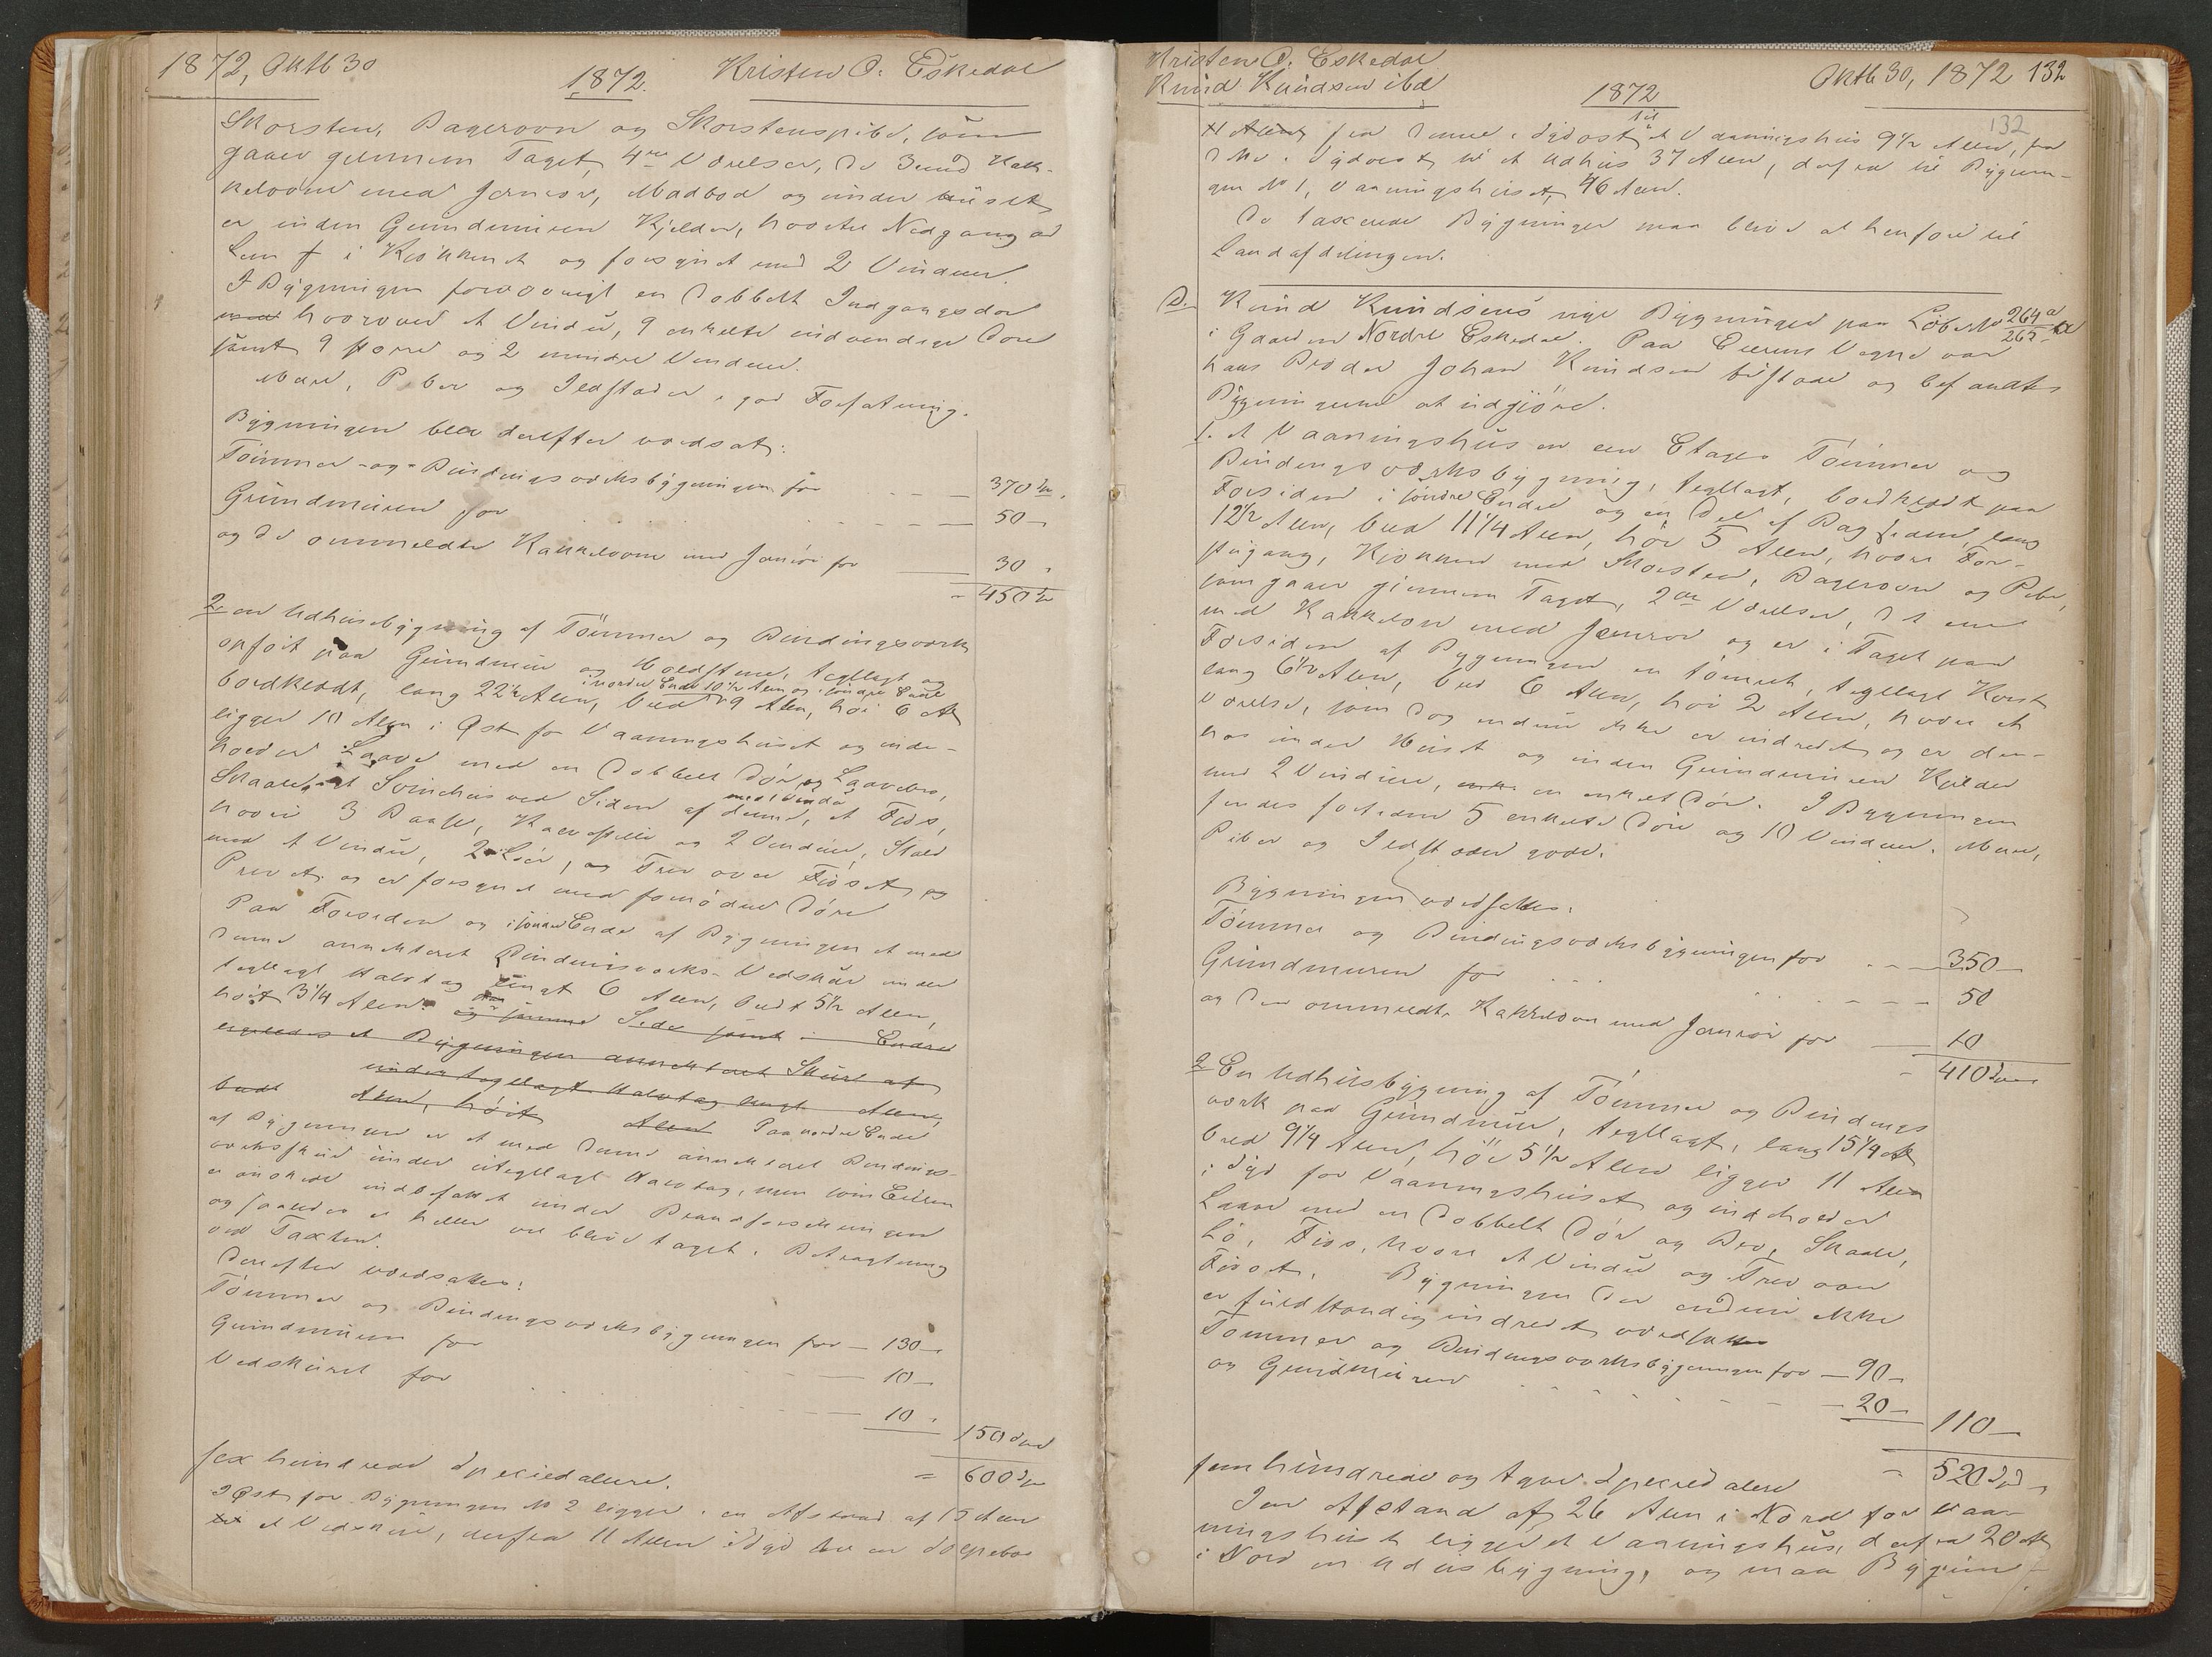 1872, Oktb 30
1872.
Kristen O. Eskedal
Skorsten, Bagerovn og Skorstenspibe, som
gaaer gjennem Taget, 4re Værelser, de 3 med Kak-
kelovne med Jernrør, Madbod og under Huset
er inden Grundmuren Kjelder, hvortil Nedgang ad
Lem i Kjøkkenet og forsynet med 2 Vinduer.
I Bygningen forøvrigt en dobbelt Indgangsdør
med hvorover et Vindu, 9 enkelte indvendige Døre
samt 9 større og 2 mindre Vinduer.
Mure, Piber og Ildsteder i god Forfatning.
Bygningen blev derefter værdsat:
Tømmer- og Bindingsværksbygningen for - - - 370 Spd.
Grundmuren for - - - 50 -
og de ommeldte Kakkelovne med Jernrør for - 30 "
= 450 Spd
2. en Udhusebygning af Tømmer og Bindingsværk
opført paa Grundmur og Holdstene, tegllagt og
i nordre Ende 10 1/2 Alen og i søndre Ende
bordklædt, lang 22 1/2 Alen, bred 9 Alen, høi 6 Al
ligger 10 Alen i Øst for Vaaningshuset og inde-
holder Laave med en dobbelt Dør og Laavebro,
Skaale, et Svinehus ved Siden af denne, et Fjøs,
med 1 Vindu
hvori 3 Baase, Kalvestille og 2 Vinduer, Stald
med et Vindu, 2 Løer, og Trev over Fjøset og
Privet og er forsynet med fornødne Døre
Paa Forsiden og i søndre Ende af Bygningen et med
denne annekteret Bindingsværks-Vedskur under
tegllagt Halvtag langt 6 Alen, bredt 5 1/2 Alen,
høit 3 1/4 Alen. og paa samme Side samt i Endre
ligeledes et Bygningen annekteret Skur af
under tegllagt Halvtag langt Alen,
bredt Alen, høit Alen Paa nordre Ende
af Bygningen er et med denne annekteret Bindings-
værksskur under utegllagt Halvtag, men som Eieren
ei ønskede indbefattet under Brandforsikringen
og saaledes ei heller vil blive taget i Betragtning
ved Taxten.
Derefter værdsattes:
Tømmer og Bindingsværksbygningen for - 130 -
Grundmuren for - - - 10 -
Vedskuret for - - - 10 "
150 Spd
sex hundrede Speciedalere. = 600 Spd
I Øst for Bygningen No 2 ligger i en Afstand af 15 Alen
et Vedskur, derfra 11 Alen i Syd til en Stolpebod
Kristen O. Eskedal
Knud Knudsen ibd
1872
Oktb 30, 1872 132
132
til
11 Alen, fra denne i Sydost et Vaaningshus 9 1/2 Alen, fra
dette i Sydvest til et Udhus 37 Alen, derfra til Bygnin-
gen No 1, Vaaningshuset, 46 Alen.
De taxerede Bygninger maa blive at henføre til
Landafdelingen.
D. Knud Knudsens nye Bygninger paa Løbe No 264 a
265 a
i Gaarden Nordre Eskedal. Paa Eierens Vegne var
hans Broder Johan Knudsen tilstede og befandtes
Bygningerne at udgjøre.
1. et Vaaningshus en een Etages Tømmer og
Bindingsværksbygning, tegllagt, bordklædt paa
Forsiden i søndre Ende og en Del af Bagsiden, lang
12 1/2 Alen, bred 11 1/4 Alen, høi 5 Alen, hvori For-
stugang, Kjøkken med Skorsten, Bagerovn og Pibe,
som gaaer gjennem Taget, 2de Værelser, det ene
med Kakkelovn med Jernrør og er i Taget paa
Forsiden af Bygningen en tømret, tegllagt Kvist
lang 6 1/2 Alen, bred 6 Alen, høi 2 Alen, hvori et
Værelse, som dog endnu ikke er indredet og er der-
hos under Huset og inden Grundmuren Kjelder
med 2 Vinduer, en enkelt Dør. I Bygningen
findes forresten 5 enkelte Døre og 10 Vinduer. Mure,
Piber og Ildsteder gode.
Bygningen værdsattes:
Tømmer og Bindingsværksbygningen for - - - 350 -
Grundmuren for - - - 50
og den ommeldte Kakkelovn med Jernrør for - 10
= 410 Spd
2. En Udhusbygning af Tømmer og Bindings
værk paa Grundmur, tegllagt, lang 15 1/4 Al
bred 9 1/4 Alen, høi 5 1/2 Alen ligger 11 Alen
i Syd for Vaaningshuset og indeholder
Laave med en dobbelt Dør og Bro, Skaale,
Lø, Fjøs, hvori et Vindu og Trev over
Fjøset. Bygningen der endnu ikke
er fuldstændig indredet værdsattes
Tømmer og Bindingsværksbygningen for - 90 -
og Grundmuren - - - 20 -
110 -
fem hundrede og tyve Speciedalere = 520 Spd
I en Afstand af 26 Alen i Nord for Vaa-
ningshuset ligger et Vaaningshus, derfra 20 Al
i Nord en Udhusbygning, og maa Bygnin-